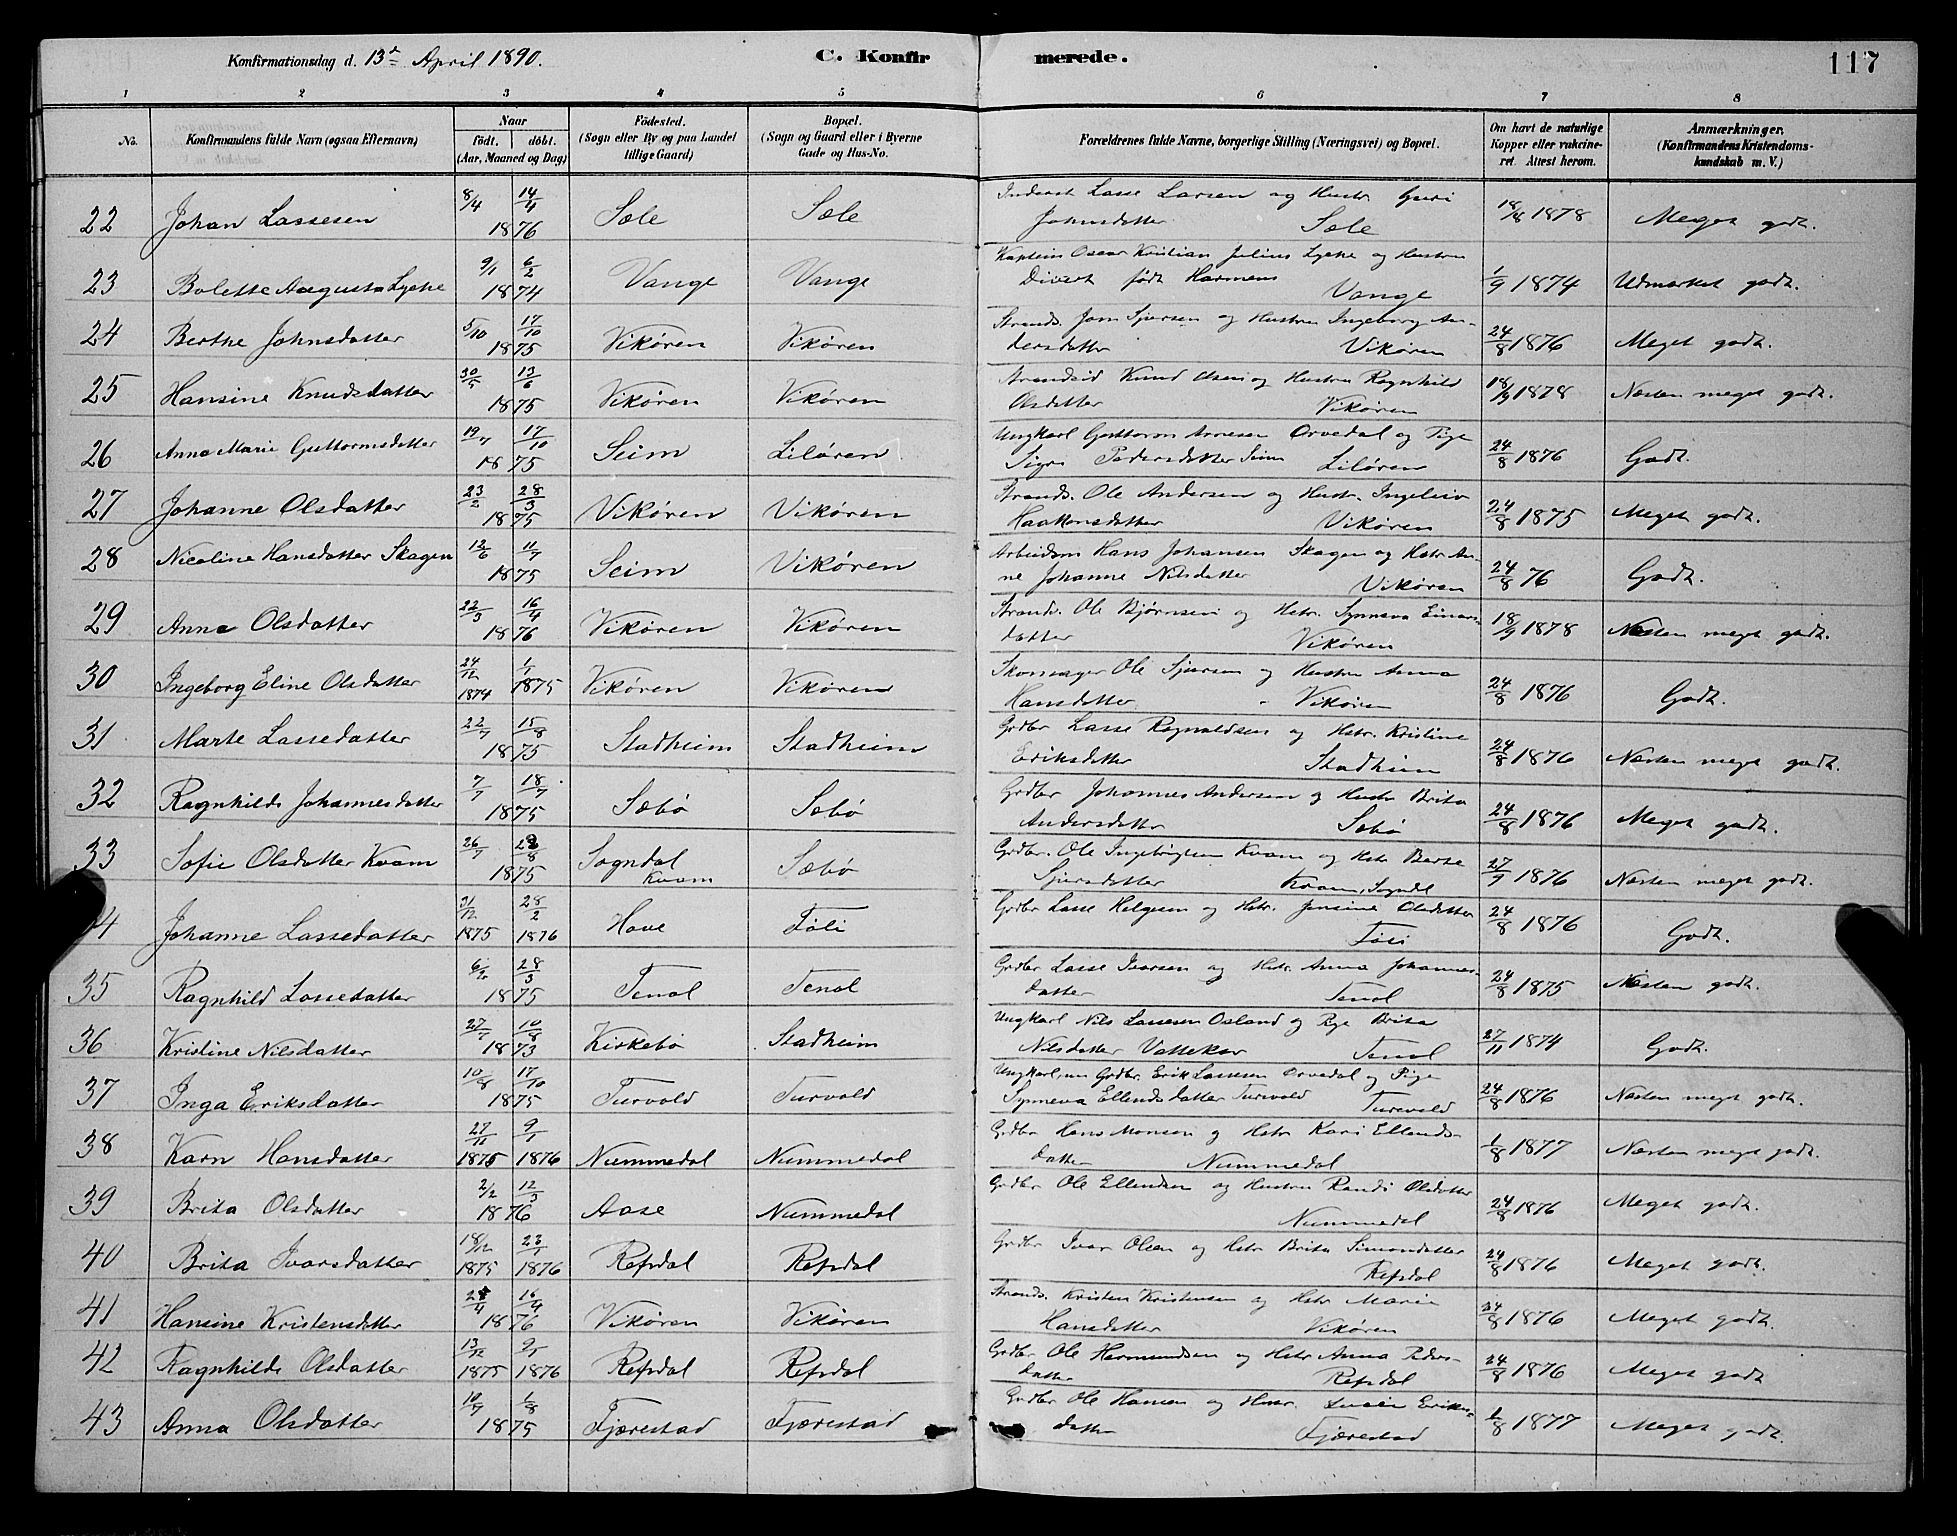 Konfirmationsdag d. 13de April 1890. C. Konfirmerede. 117
1 2 3 4 5 6 7 8
No. Konfirmandens fulde Navn (ogsaa Efternavn) Naar født. døbt. (Aar, Maaned og Dag) Fødested. (Sogn eller By og paa Landet tillige Gaard) Bopæl. (Sogn og Gaard eller i Byerne Gade og Hus-No. Forældrenes fulde Navne, borgerlige Stilling (Næringsvei) og Bopæl. Om havt de naturlige Kopper eller vakcineret. Attest herom. Anmærkninger. (Konfirmandens Kristendomskundskab m. V.)
22 Johan Lassesen 8/4 14/4 1876 Sæle Sæle Inderst Lasse Larsen og Hustr. Guri Johnsdatter Sæle 18/8 1878 Meget godt.
23 Bolette Augusta Lyche 9/1 6/2 1874 Vange Vange Kaptein Oscar Kristian Julius Lyche og Hustru født Harmens Vange 1/9 1874 Udmærket godt.
24 Berthe Johnsdatter 5/10 17/10 1875 Vikøren Vikøren Strands. John Sjursen og Hustru Ingeborg Andersdatter Vikøren 24/8 1876 Meget godt.
25 Hansine Knudsdatter 30/5 13/6 1875 Vikøren Vikøren Strandsid Knud Olsen og Hustru Ragnhild Olsdatter Vikøren 18/9 1878 Næsten meget godt.
26 Anna Marie Guttormsdatter 19/7 17/10 1875 Seim Liløren Ungkarl Guttorm Arnesen Orvedal og Pige Sigri Pedersdatter Seim Liløren 24/8 1876 Godt.
27 Johanne Olsdatter 23/2 28/3 1875 Vikøren Vikøren Strands. Ole Andersen og Hustr. Ingeleiv Haakonsdatter Vikøren 24/8 1875 Meget godt.
28 Nicoline Hansdatter Skagen 12/6 11/7 1875 Seim Vikøren Arbeidsm Hans Johansen Skagen og Hstr Anne Johanne Nilsdatter Vikøren 24/8 76 Godt.
29 Anna Olsdatter 22/3 16/4 1876 Vikøren Vikøren Strands. Ole Bjørnsen og Hstr. Synneva Einarsdatter Vikøren 18/9 1878 Næsten meget godt.
30 Ingeborg Eline Olsdatter 24/12 1874 1/1 1875 Vikøren Vikøren Skomager Ole Sjursen og Hustru Anna Hansdatter Vikøren 24/8 1876 Godt.
31 Marte Lassedatter 22/7 15/8 1875 Stadheim Stadheim Grdbr Lasse Ragnaldsen og Hstr. Kristine Eriksdatter Stadheim 24/8 1876 Næsten meget godt.
32 Ragnhilde Johannesdatter 7/7 18/7 1875 Sæbø Sæbø Grdbr Johannes Andersen og Hustr Brita Andersdatter Sæbø 24/8 1876 Meget godt.
33 Sofie Olsdatter Kvam 26/7 28/8 1875 Sogndal Kvam Sæbø Grdbr. Ole Ingebrigtsen Kvam og Hstr Berte Sjursdatter Kvam, Sogndl 27/9 1876 Næsten meget godt.
4 Johanne Lassedatter 31/12 1875 28/2 1876 Hove Føli Grdbr Lasse Helgesen og Hstr. Jensine Olsdatter Føli 24/8 1876 Godt.
35 Ragnhild Lassedatter 6/2 28/3 1875 Tenol Tenol Grdbr Lasse Ivarsen og Hstr. Anna Johannesdatter Tenol 24/8 1875 Næsten godt.
36 Kristine Nilsdatter 27/7 10/8 1873 Kirkebø Stadheim Ungkarl Nils Lassesen Osland og Pige Brita Nilsdatter Vattekar Tenol 27/11 1874 Godt.
37 Inga Eriksdatter 10/8 17/10 1875 Turvold Turvold Ungkarl, nu Grdbr. Erik Lassesen Orvedal og Pige Synneva Ellendsdatter Turvold Turvold 24/8 1876 Næsten meget godt.
38 Karn Hansdatter 27/11 1875 9/1 1876 Nummedal Nummedal Grdbr Hans Monsen og Hstr Kari Ellendsdatter Nummedal 1/8 1877 Næsten meget godt.
39 Brita Olsdatter 2/2 12/3 1876 Aase Nummedal Grdbr Ole Ellendsen og Hustru Randi Olsdatter Nummedal 24/8 1876 Meget godt.
40 Brita Ivarsdatter 18/12 1875 23/1 1876 Refsdal Refsdal Grdbr Ivar Olsen og Hstr Brita Simondatter Refsdal 24/8 1876 Meget godt.
41 Hansine Kristensdatter 16/4 1876 Vikøren Vikøren Strands. Kristen Kristensen og Hstr Marie Hansdatter Vikøren 24/8 1876 Meget godt.
42 Ragnhilde Olsdatter 13/12 1875 9/1 1876 Refsdal Refsdal Grdbr Ole Hermundsen og Hstr Anna Pedersdatter Refsdal 24/8 1876 Meget godt
43 Anna Olsdatter 10/7 1/8 1875 Fjærestad Fjærestad Grdbr Ole Hansen og Hustr. Eriksdatter Fjærestad 1/8 1877 Meget godt.